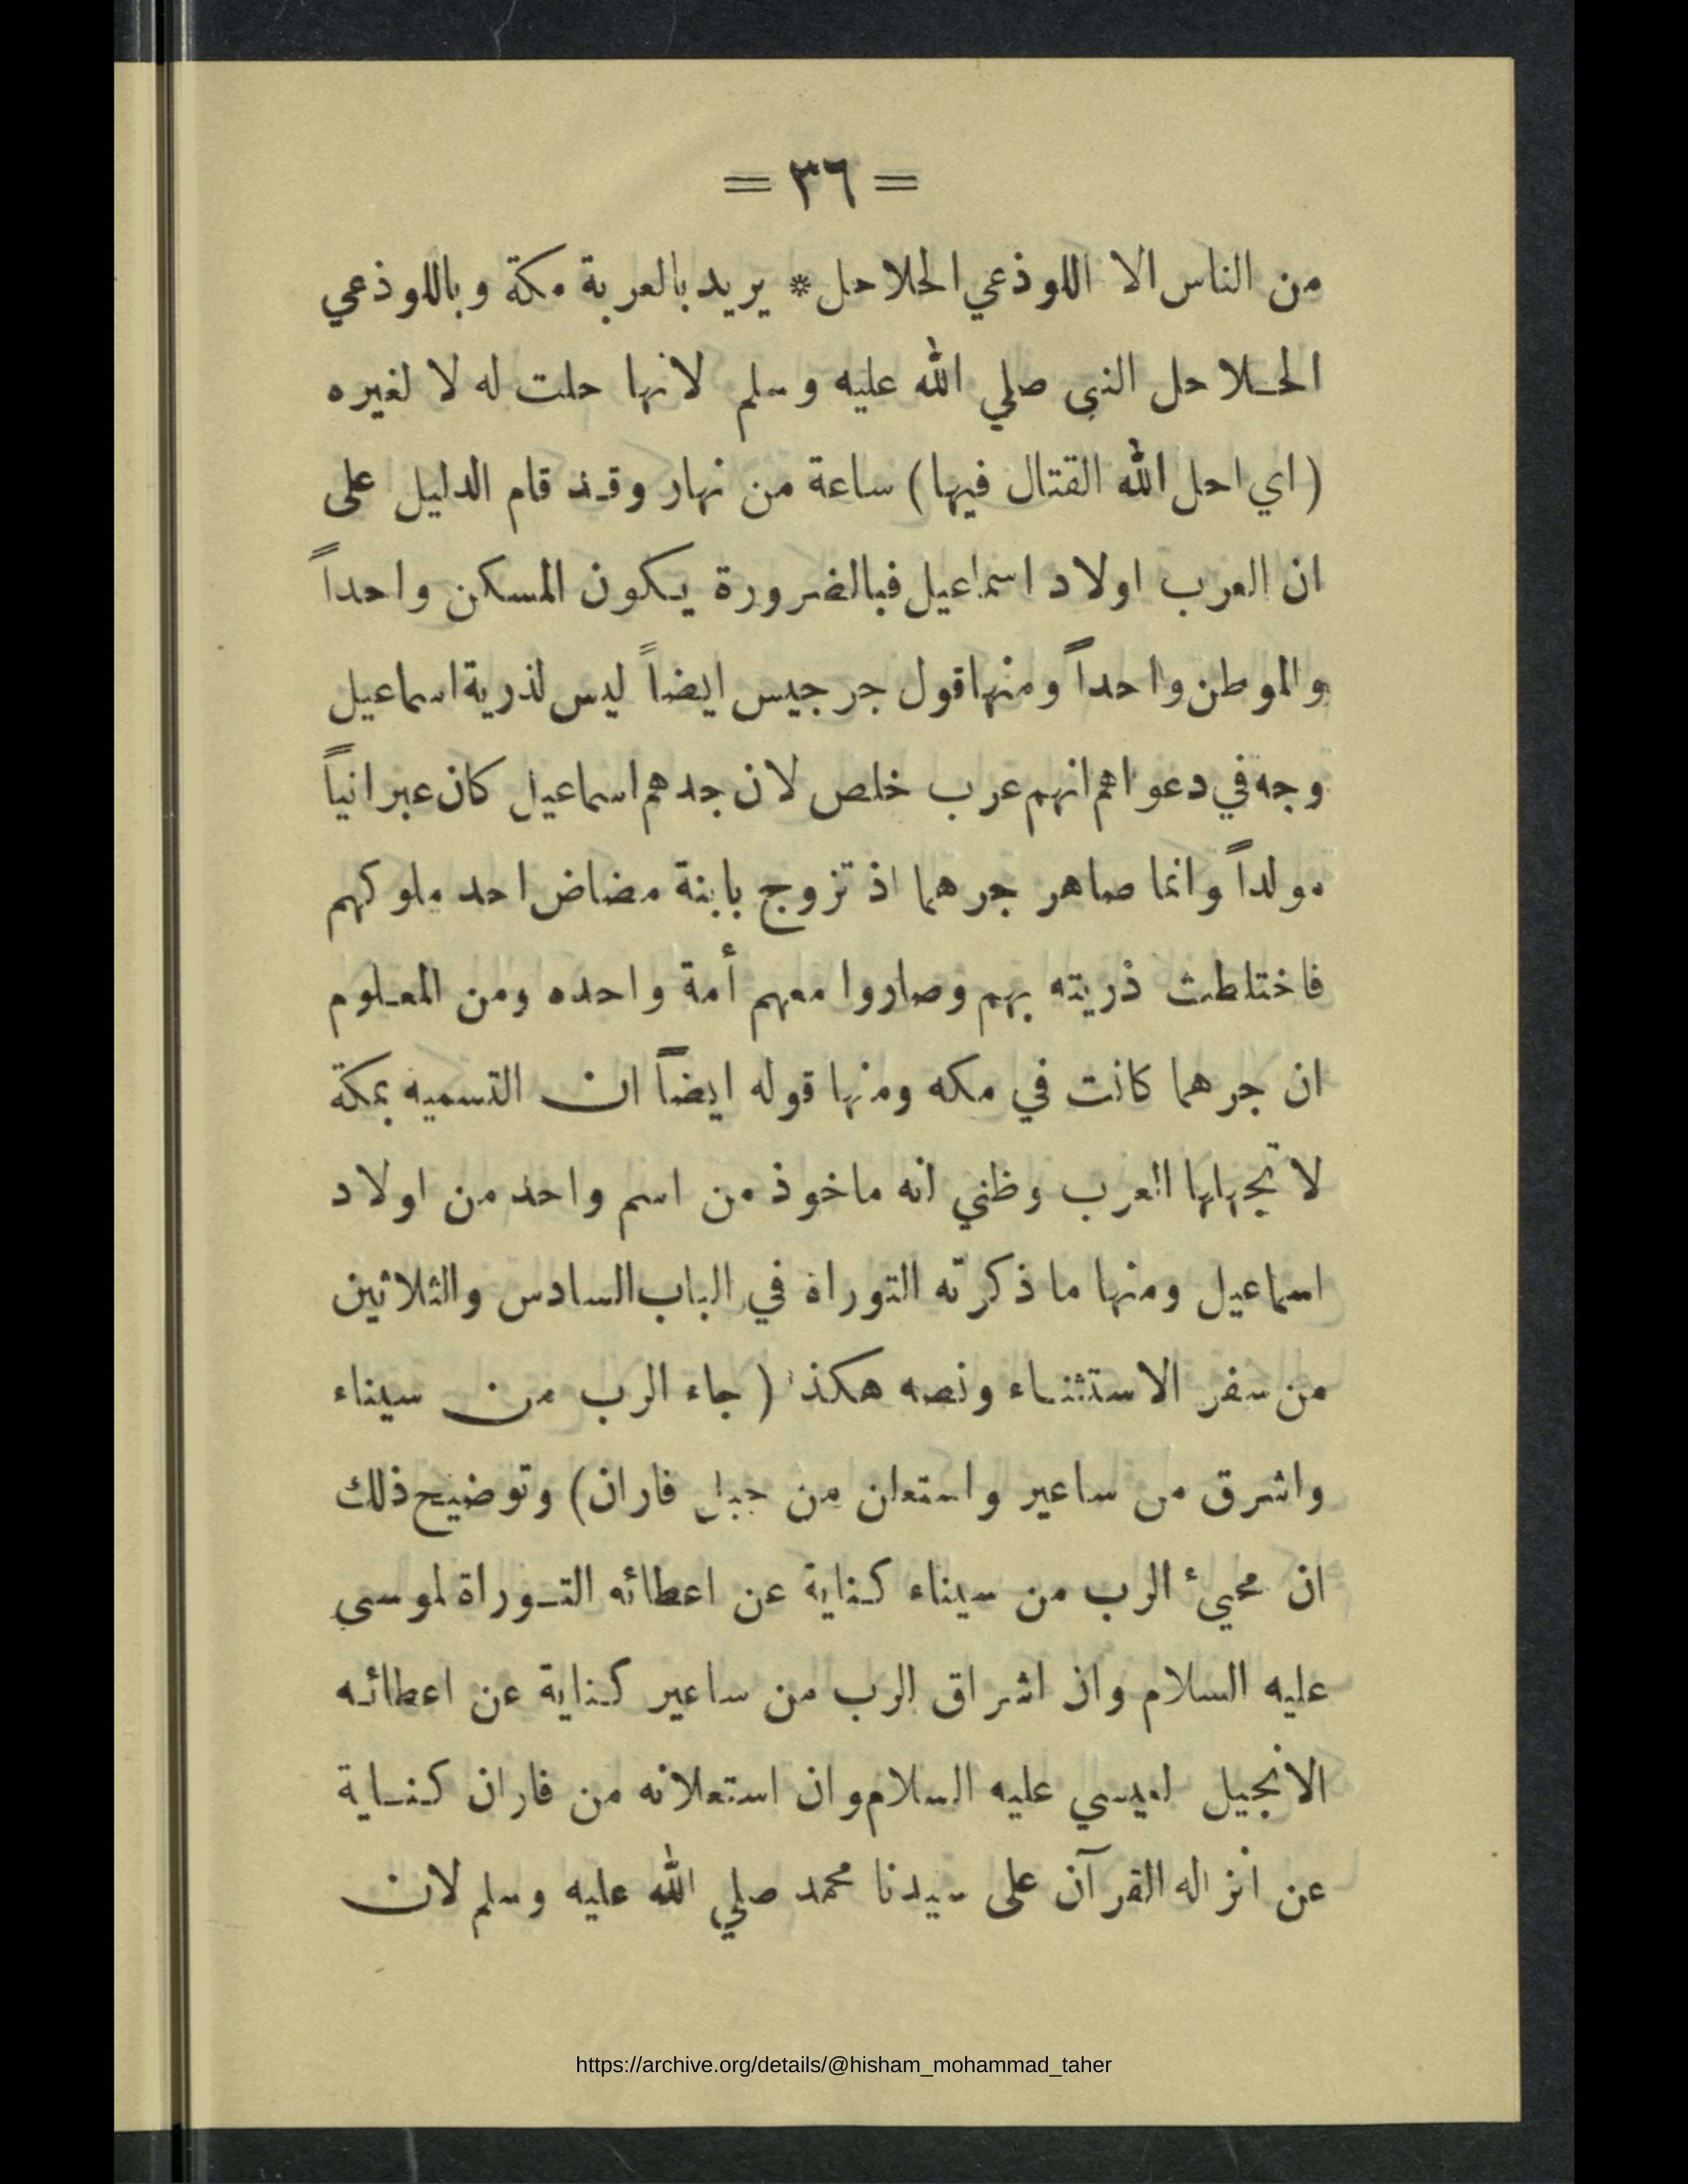 = ٣٦ =
من الناس الا اللوذعي الحلاحل * يريد بالعربة مكة وباللوذعي
الحـلاحل النبى صلي الله عليه وسلم لانها حلت له لا لغيره
(اي احل الله القتال فيها) ساعة من نهار وقد قام الدليل على
ان العرب اولاد اسماعيل فبالضرورة يكون المسكن واحداً
والموطن واحداً ومنها قول جرجيس ايضاً ليس لذرية اسماعيل
وجه في دعواهم انهم عرب خلص لان جدهم اسماعيل كان عبرانياً
مولداً وانما صاهر جرهما اذ تزوج بابنة مضاض احد ملوكهم
فاختلطت ذريته بهم وصاروا معهم أمة واحده ومن المعلوم
ان جرهما كانت في مكه ومنها قوله ايضاً ان التسميه بمكة
لا تجهلها العرب وظني انه ماخوذ من اسم واحد من اولاد
اسماعيل ومنها ما ذكرته التوراة في الباب السادس والثلاثين
من سفر الاستثناء ونصه هكذا (جاء الرب من سيناء
واشرق من ساعير واستعلن من جبل فاران) وتوضيح ذلك
ان مجيئ الرب من سيناء كناية عن اعطائه التـوراة لموسى
عليه السلام وان اشراق الرب من ساعير كناية عن اعطائه
الانجيل لعيسي عليه السلام وان استعلانه من فاران كناية
عن انزاله القرآن على سيدنا محمد صلي الله عليه وسلم لان
https://archive.org/details/@hisham_mohammad_taher